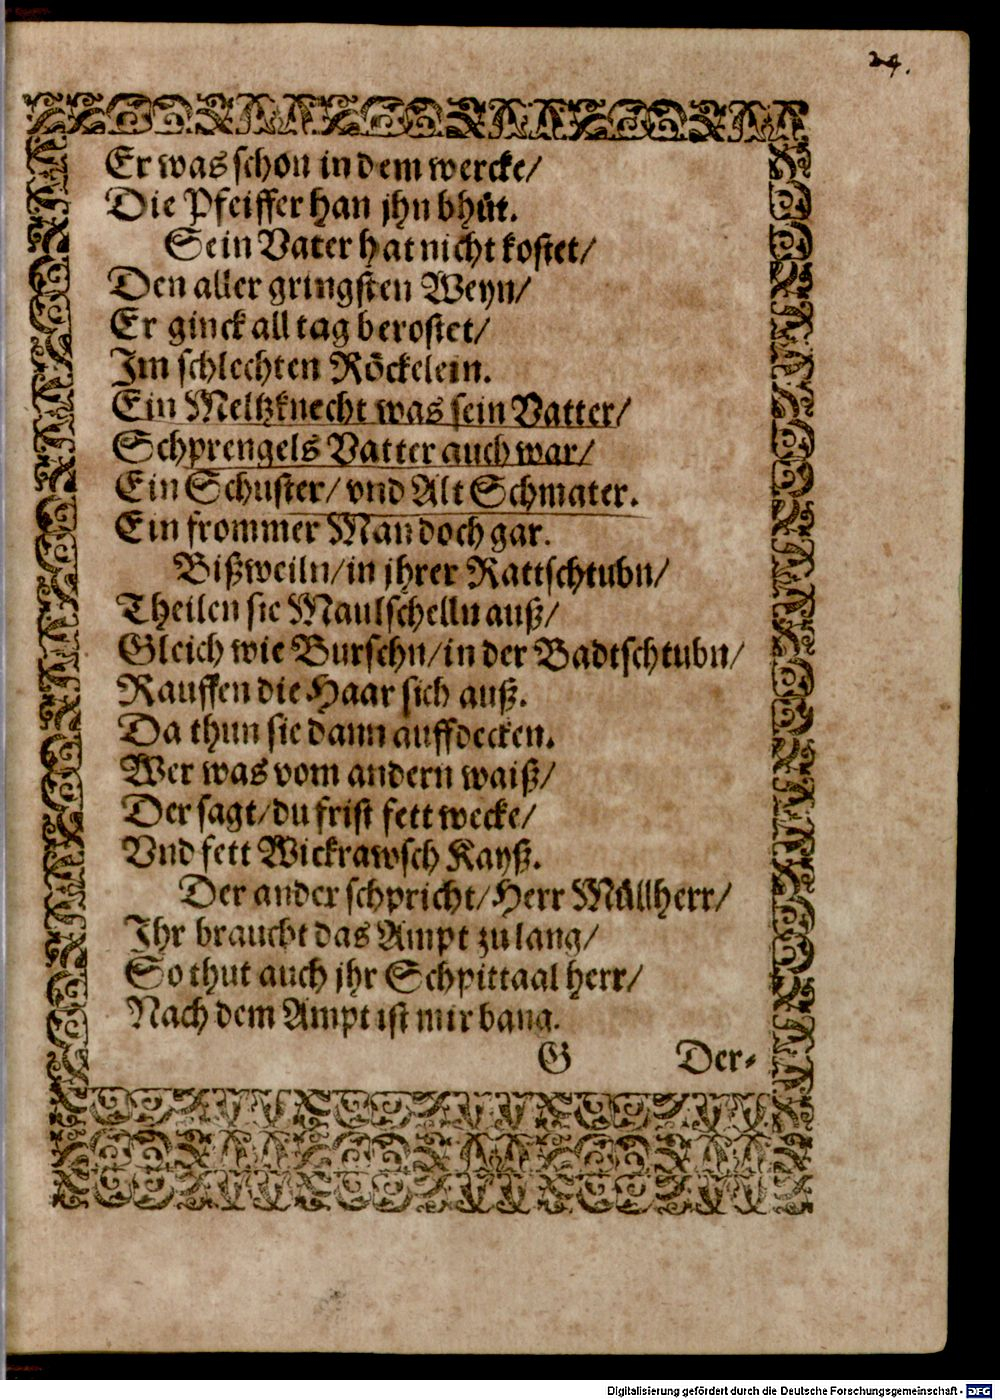 24.
Er was schon in dem wercke/
Die Pfeiffer han jhn bhüt.
Sein Vater hat nicht kostet/
Den aller gringsten Weyn/
Er ginck all tag berostet/
Im schlechten Röckelein.
Ein Meltzknecht was sein Vatter/
Schprengels Vatter auch war/
Ein Schuster/ vnd Alt Schmater.
Ein frommer Man doch gar.
Bißweiln/ in jhrer Rattschtubn/
Theilen sie Maulschelln auß/
Gleich wie Burschn/ in der Badtschtubn/
Rauffen die Haar sich auß.
Da thun sie dann auffdecken.
Wer was vom andern waiß/
Der sagt/ du frist fett wecke/
Vnd fett Wickrawsch Kayß.
Der ander schpricht/ Herr Müllherr/
Ihr braucht das Ampt zu lang/
So thut auch jhr Schpittaal herr/
Nach dem Ampt ist mir bang.
G Der-
Digitalisierung gefördert durch die Deutsche Forschungsgemeinschaft - DFG